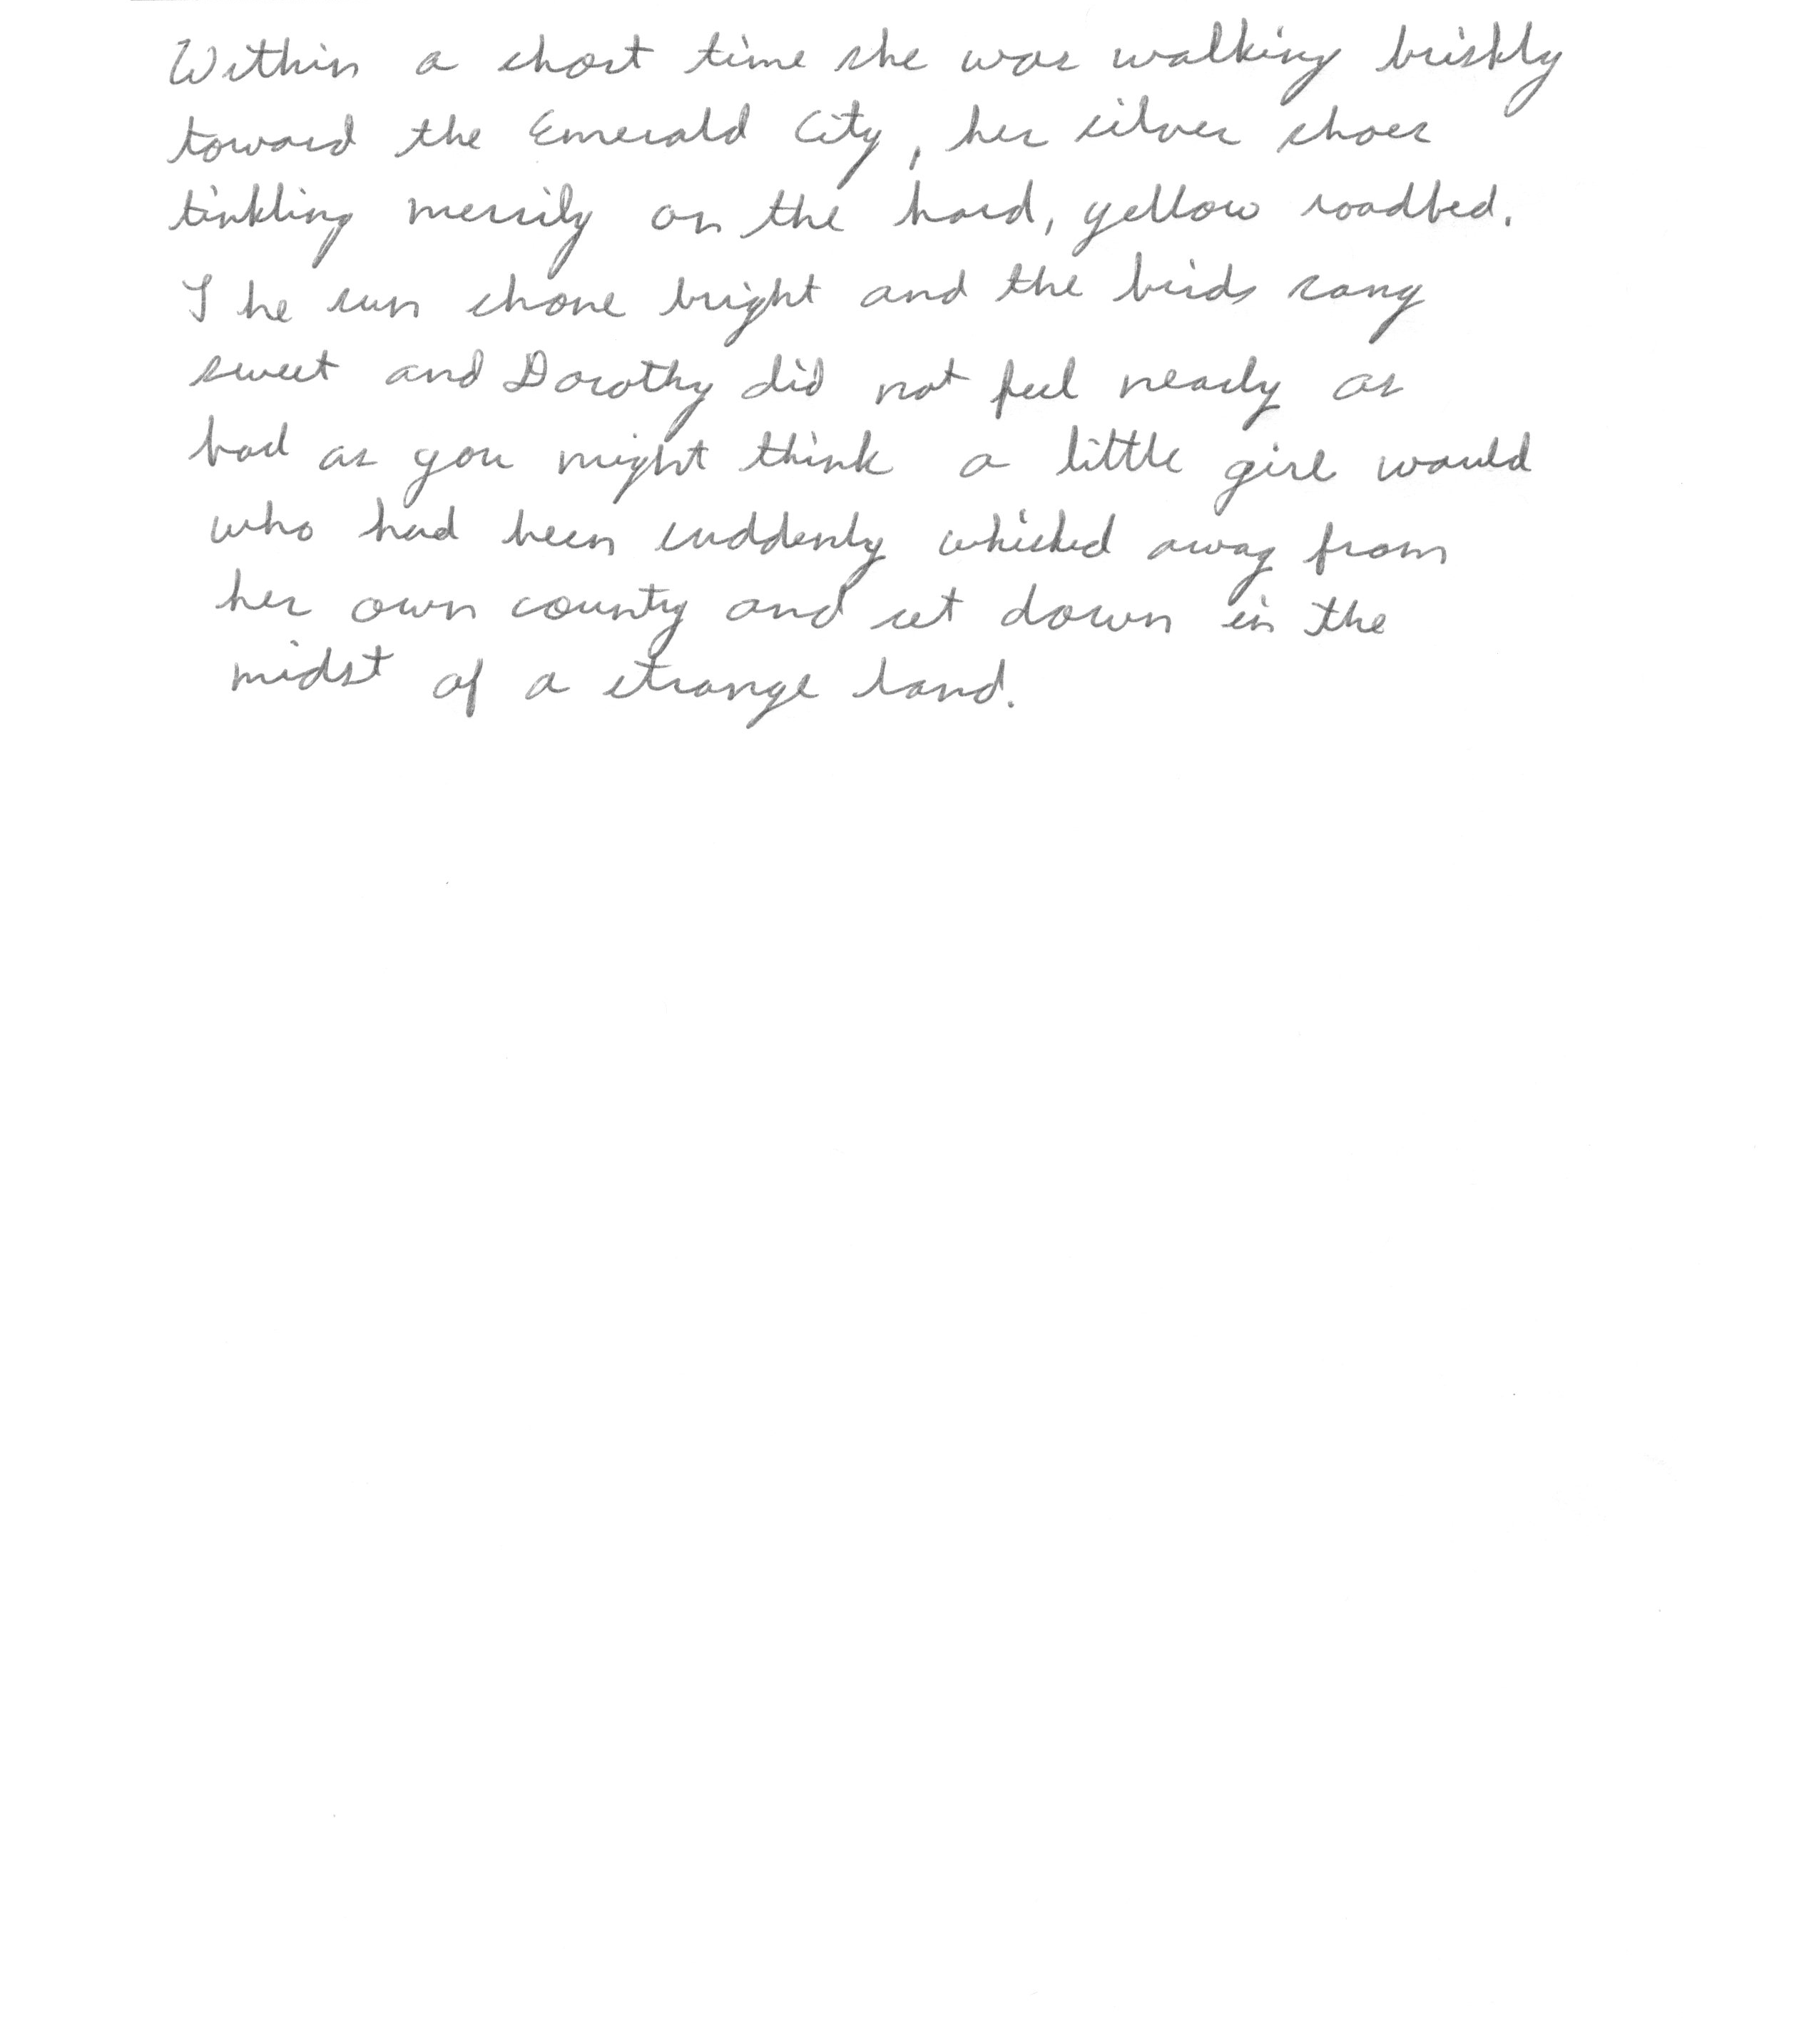 Within a short time she was walking briskly
toward the Emerald City, her silver shoes
tinkling merrily on the hard, yellow roadbed.
The sun shone bright and the birds sang
sweet and Dorothy did not feel nearly as
bad as you might think a little girl would
who had been suddenly whisked away from
her own county and set down in the
midst of a strange land.